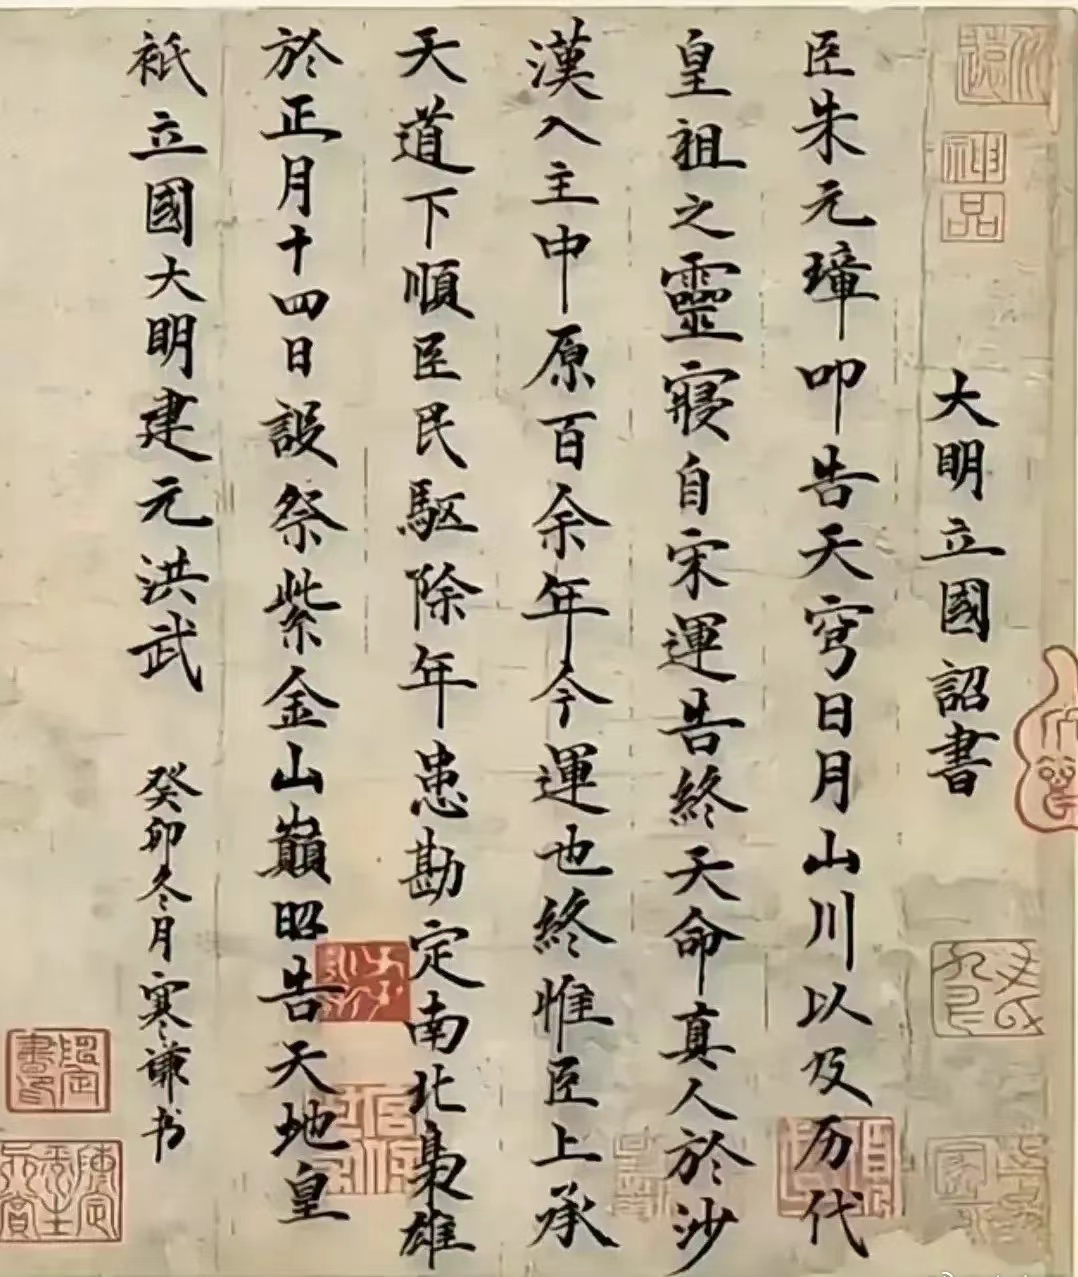 神品
大明立國詔書
臣朱元璋叩告天穹日月山川以及历代
皇祖之靈寢自宋運告終天命真人於沙
漢入主中原百余年今運也終惟臣上承
天道下順臣民駆除年患勘定南北梟雄
於正月十四日設祭紫金山巔昭告天地皇
衹立國大明建元洪武 癸卯冬月寒謙书